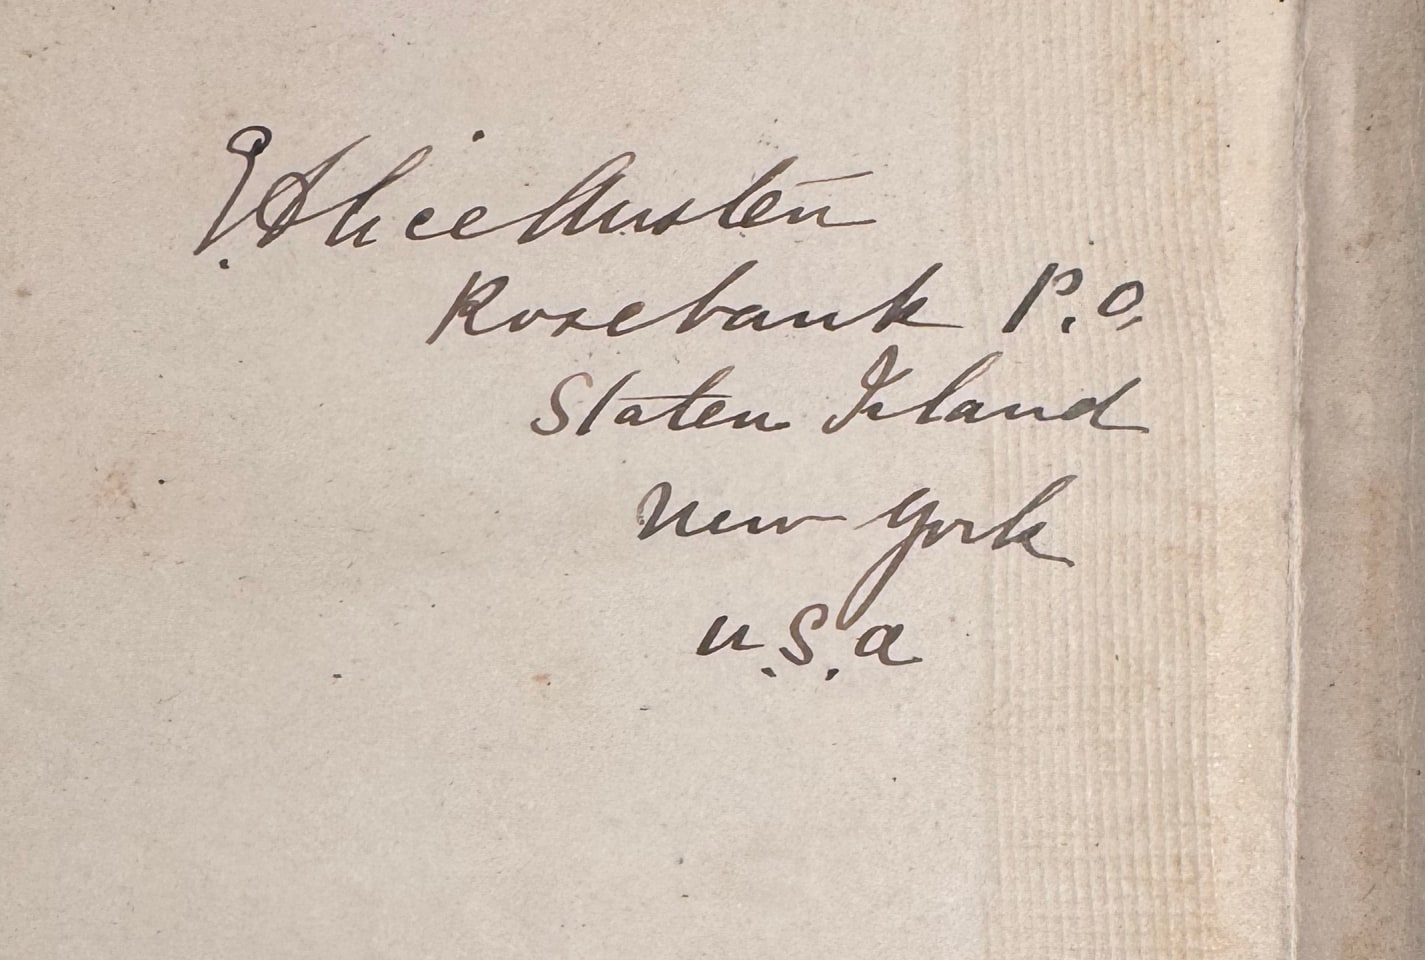 E. Alice Austen
Rosebank P.O.
Staten Island
New York
U.S.A